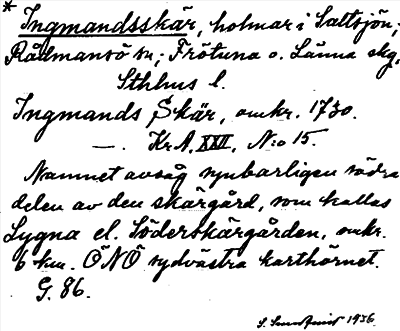 * Ingmandsskär, holmar i Saltsjön;
Rådmansö sn; Frötuna o. Länna skg,
Sthlms l.
Ingmands Skär, omkr. 1730.
—. Kr.A, XXII, N:o 15.
Namnet avsåg synbarligen södra
delen av den skärgård, som kallas
Lygna el. Söderskärgården, omkr.
6 km. ÖNÖ sydvästra karthörnet.
G. 86.
1936